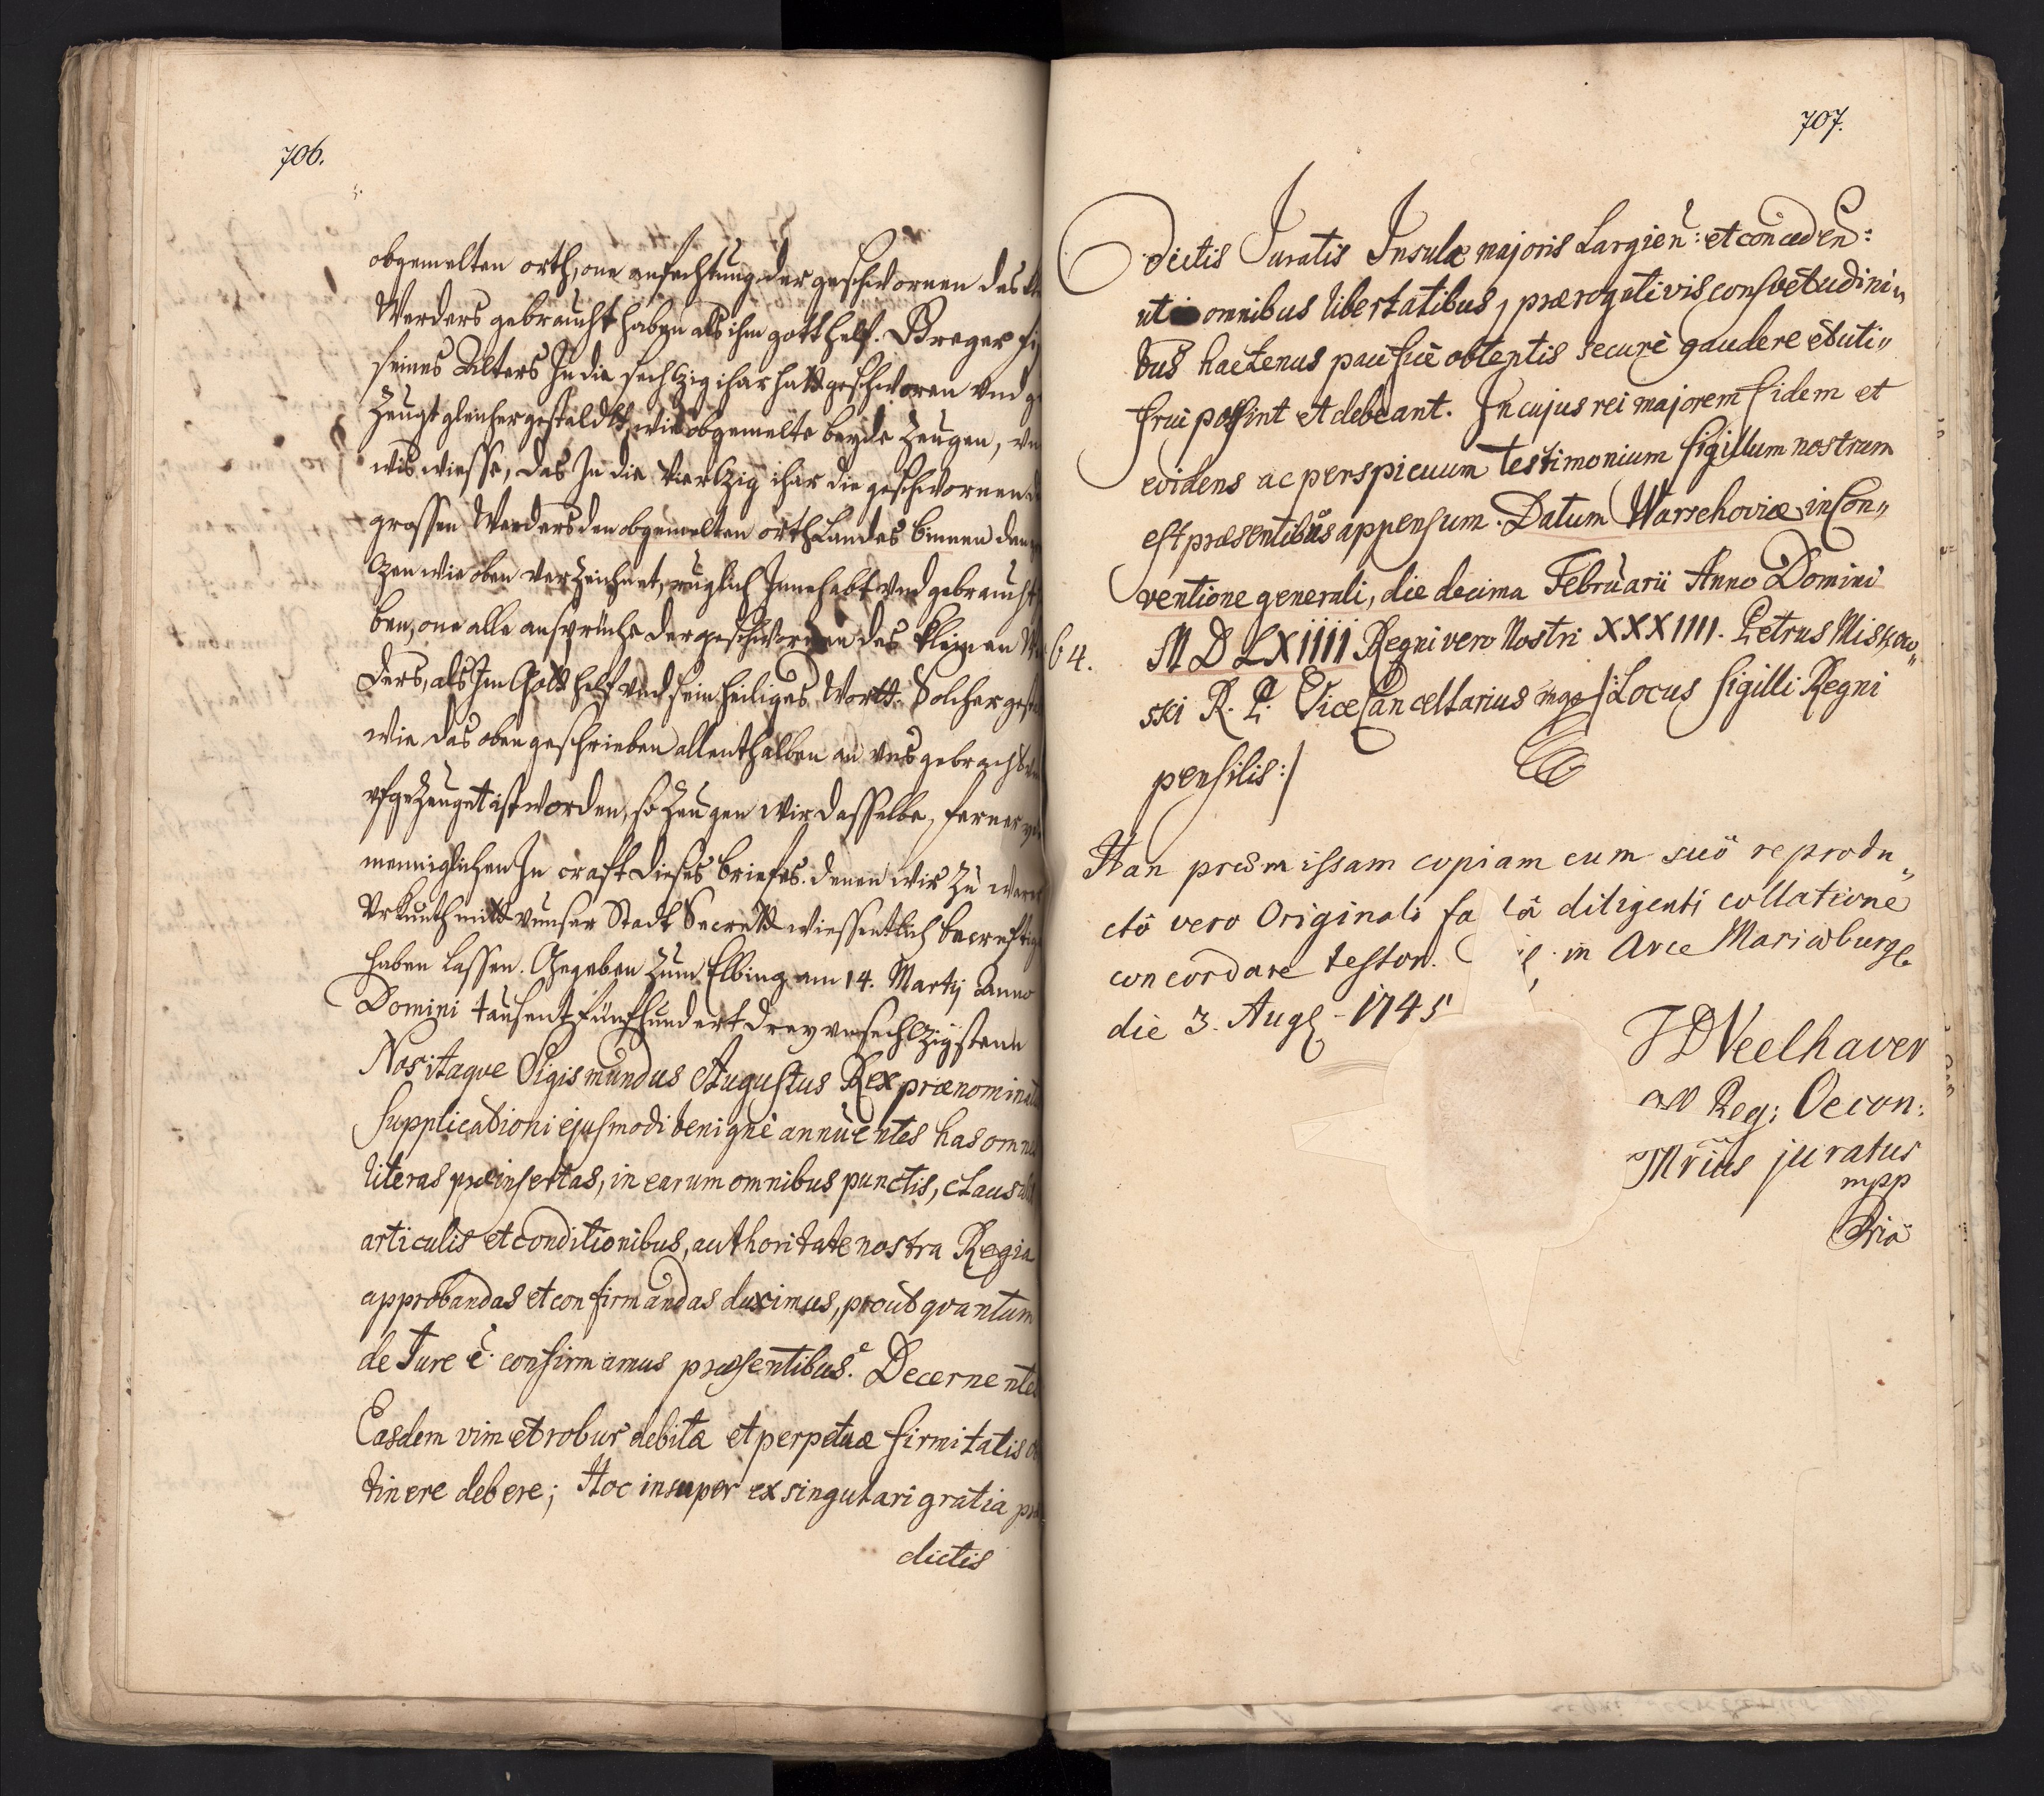 706.
obgemelten orth, one anfechtung der geschwornen des
Werders gebraucht haben als ihm gott helf. Breger
seines Alters In die sechtzig ihar hatt geschworen vnd
Zeugt gleicher gestaldt, wie obgemelte beyde Zeugen,
wis wiesse, das In die viertzig ihar die geschwornen
grossen Werders den obgemelten orth Landes binnen den
tzen wie oben verzeichnet, ruglich Innehabt vnd gebraucht
ben, one alle ansprüche der geschwornen des kleinen
ders, als Im Gott helf vnd sein heiliges Wortt. Solcher
wie das oben geschrieben allenthalben an vns gebracht
vfgezeuget ist worden, so zeugen wir dasselbe, ferner
menniglichen In craft dieses briefes. denen wir zu
Vrkunth mitt vnnser Stadt Secrett wiessentlich becreftig
haben lassen. Gegeben zum Elbing am 14. Martij Anno
Domini tausent fünfhundert drey vnsechtzigstenn
Nos itaque Sigismundus Augustus Rex prænominat
supplicationi ejusmodi benignè annuentes has omn
literas præinsertas, in earum omnibus punctis, claus
articulis et conditionibus, authoritate nostra Regia
approbandas et confirmandas duximus, prout qvantum
de Jure è confirmamus præsentibus. Decernentes
Easdem vim et robur debitæ et perpetuæ firmitatis
tinere debere; Hoc insuper ex singulari gratia
dictis
707.
dictis Juratis Insulæ majoris Largien: et conceden:
ut omnibus libertatibus, prærogativis consvetudini„
bus hactenus pacificè obtentis securè gaudere et uti„
frui possint et debeant. In cujus rei majorem fidem et
evidens ac perspicuum testimonium sigillum nostrum
est præsentibus appensum. Datum Warschoviæ in Con„
ventione generali, die decima Februarii Anno Domini
64. M D LXiiii Regni vero Nostri XXXIIII. Petrus Miskow„
ski R. P. ViceCancellarius mpp /: Locus sigilli Regni
pensilis :/
Han præmissam copiam cum suô reprodu„
ctô vero Originali diligenti collatione
concordare testor. in Arce Mariæburg
die 3. Aug - 1745
J D Neelhaver
Reg: Oecon:
juratus
mpp